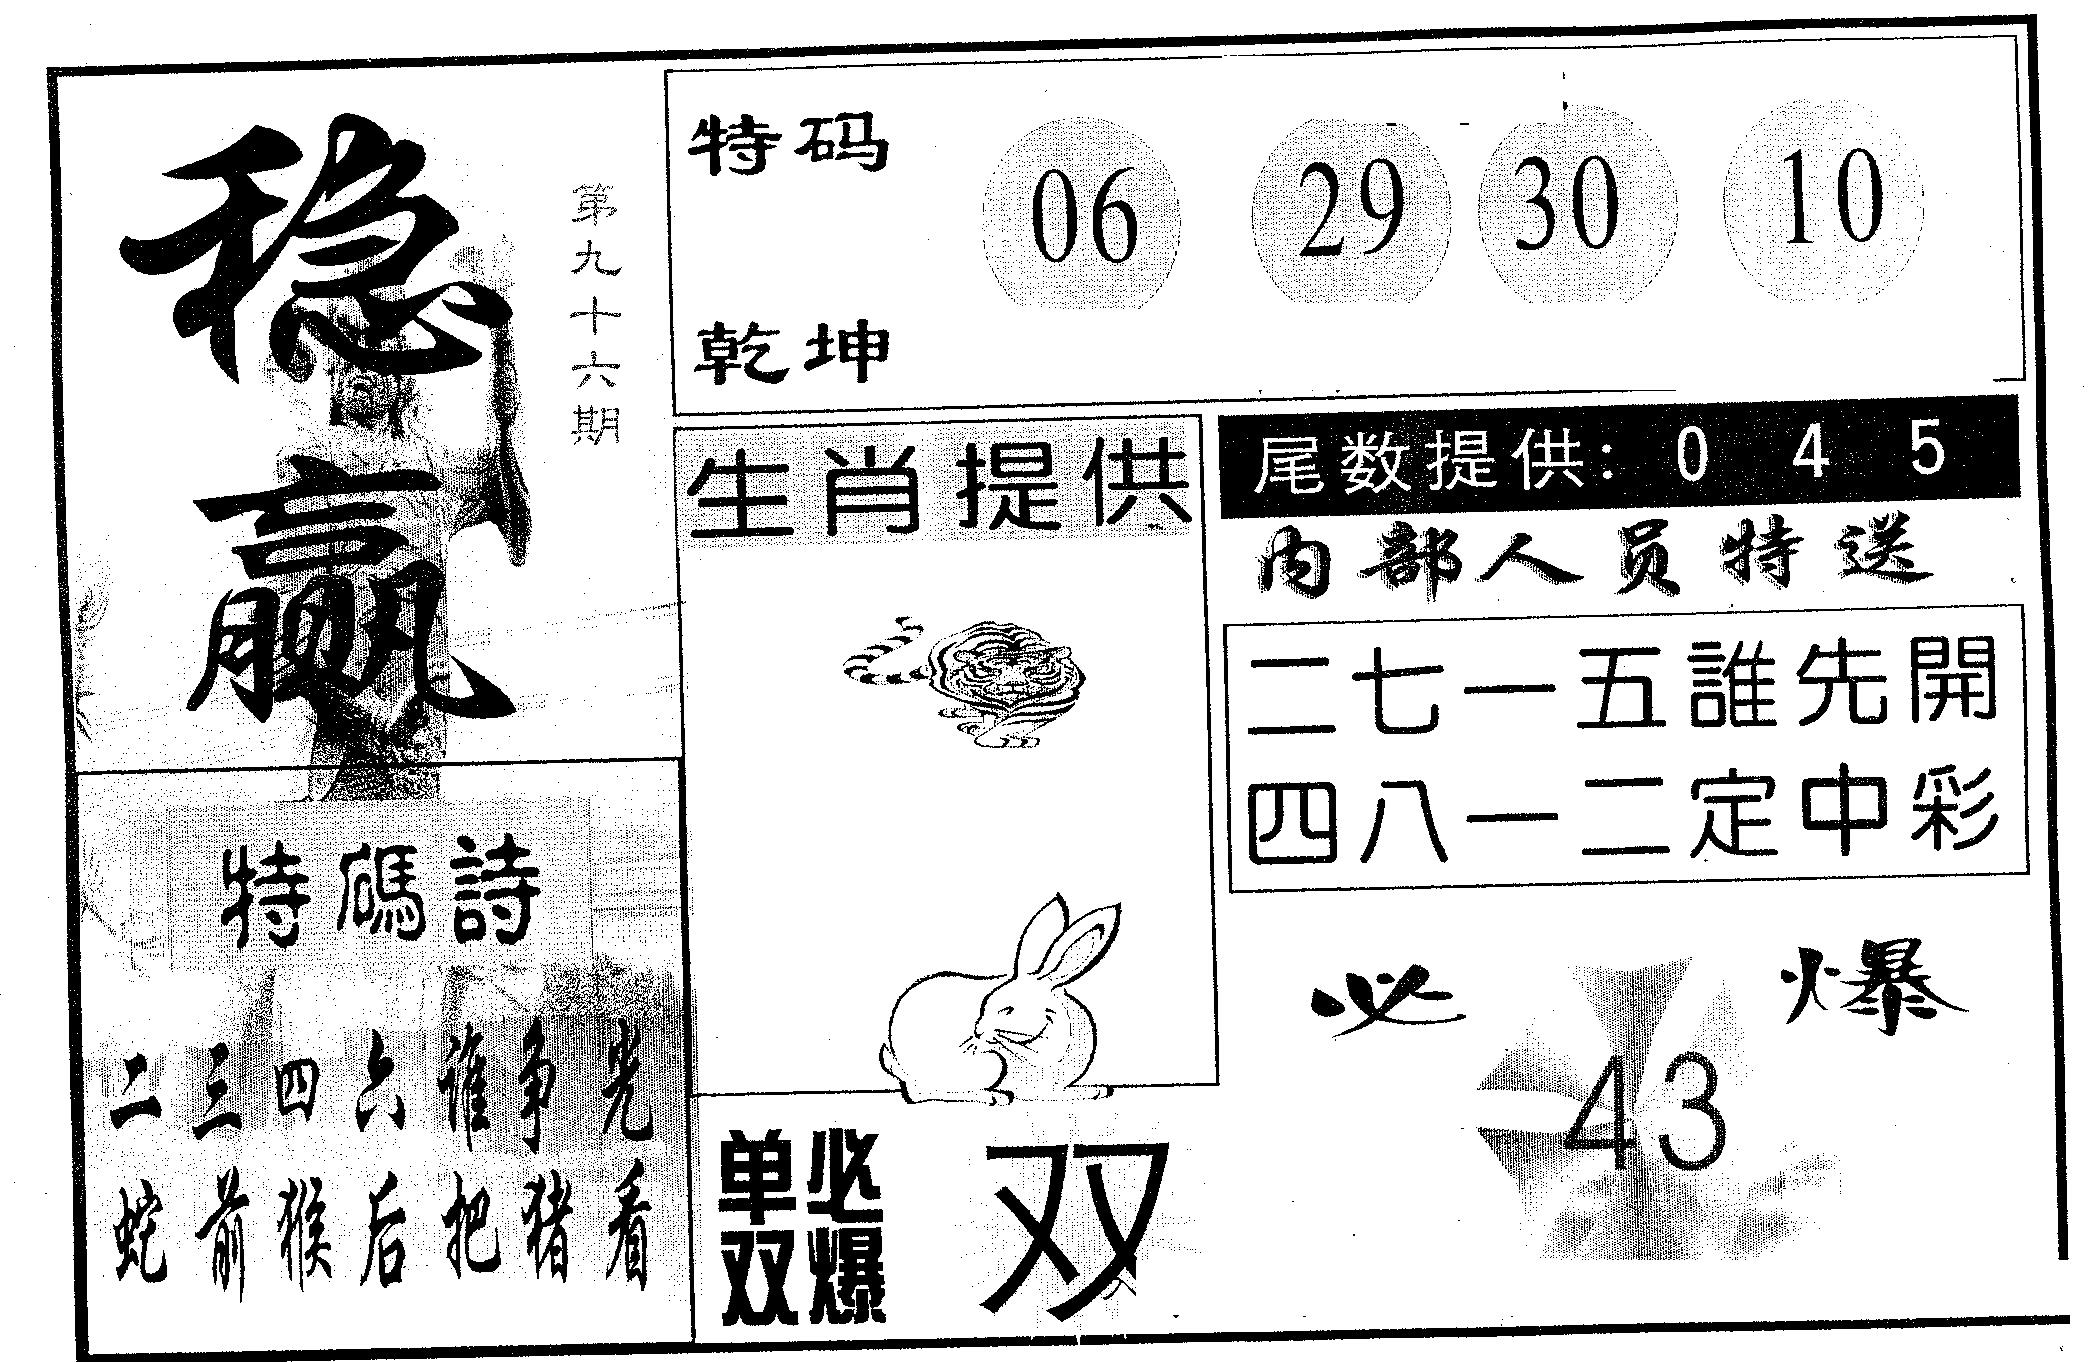 稳赢
第九十六期
特码
乾坤
06 29 30 10
生肖提供
尾数提供：0 4 5
内部人员特送
二七一五誰先開
四八一二定中彩
特碼詩
二三四六谁争先
蛇前猴后把猪看
单双必爆
双
必爆
43